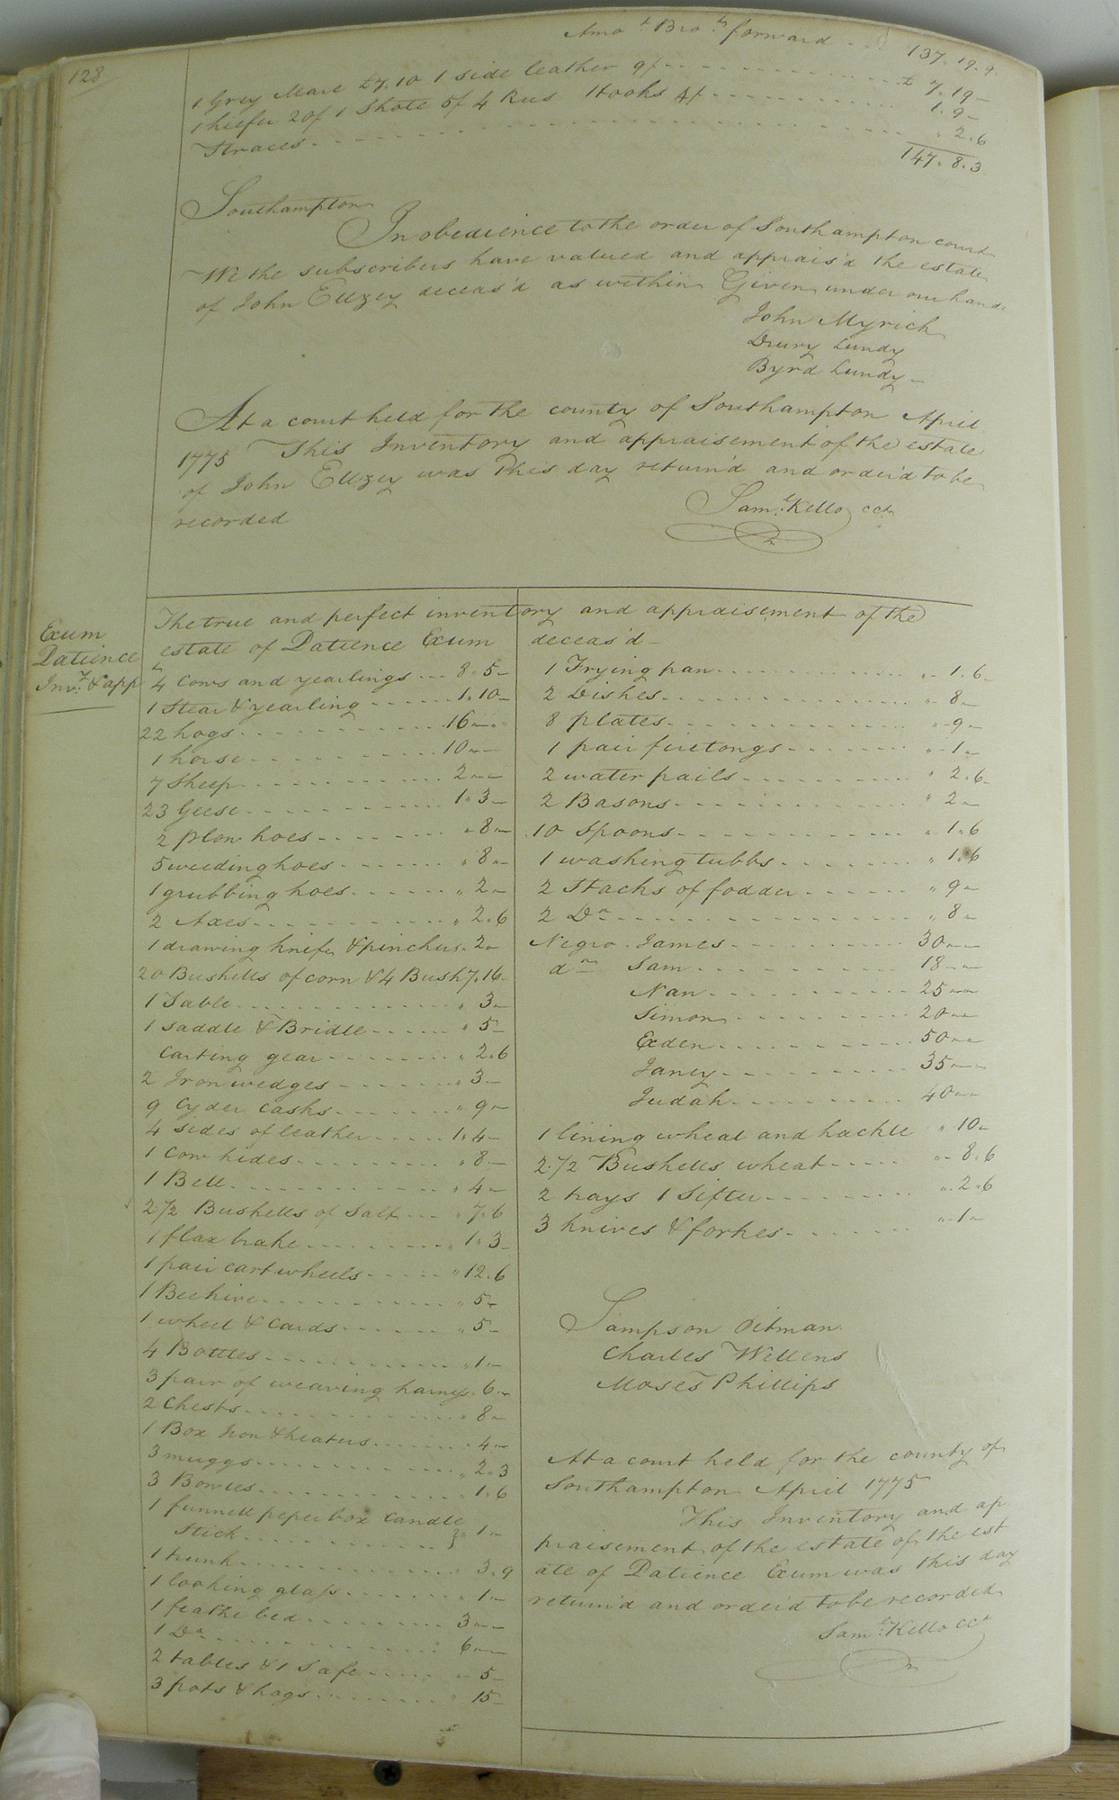 128
Amot Brots forward - - 137.19.9
1 Grey Mare £7.10 1 side leather 9/ - - - £ 7.19 -
1 heifer 20/ 1 Shote 5/ 4 Rus Hooks 4/ - - - 1.9 -
Traces - - - " 2.6
147.8.3
Southampton
In obedience to the order of Southampton court
We the subscribers have valued and apprais'd the estate
of John Ellzey deceas'd as within Given under our hands
John Myrick
Drury Lundy
Byrd Lundy -
At a court held for the county of Southampton April
1775 This Inventory and appraisement of the estate
of John Ellzey was this day return'd and order'd to be
recorded
Saml. Kello cct
Exum
Patience
Invy. & app
The true and perfect inventory and appraisement of the
estate of Patience Exum deceas'd -
4 Cows and yearlings - - - 8.5 -
1 Stear & yearling - - - 1.10 -
22 hogs - - - 16 - -
1 horse - - - 10 - -
7 Sheep - - - 2 - -
23 Geese - - - 1.3 -
2 plow hoes - - - " 8 -
5 weeding hoes - - - " 8 -
1 grubbing hoes - - - " 2 -
2 Axes - - - " 2.6
1 drawing knife & pinchus - 2 -
20 Bushells of corn & 4 Bush 7.16 -
1 Table - - - " 3 -
1 saddle & Bridle - - - " 5 -
Carting gear - - - " 2.6
2 Iron wedges - - - " 3 -
9 Cyder Casks - - - " 9 -
4 sides of leather - - - 1.4 -
1 Cow hides - - - " 8 -
1 Bell - - - " 4 -
2 1/2 Bushells of Salt - - - " 7.6
1 flax brake - - - " 1.3 -
1 pair cart wheels - - - " 12.6
1 Beehive - - - " 5 -
1 wheel & Cards - - - " 5 -
4 Bottles - - - " 1 -
3 pair of weaving harness . 6 -
2 Chests - - - " 8 -
1 Box Iron & heaters - - - " 4 -
3 muggs - - - " 2.3
3 Bowles - - - " 1.6
1 funnell peper box Candle
Stick - - - } " 1 -
1 trunk - - - " 3.9
1 looking glass - - - " 1 -
1 feathe bed - - - 3 - -
1 Do - - - 6 - -
2 tables & 1 Safe - - - " 5 -
3 pots & hags - - - " 15 -
1 Frying pan - - - " 1.6 -
2 Dishes - - - " 8 -
8 plates - - - " 9 -
1 pair firetongs - - - " 1 -
2 water pails - - - " 2.6 -
2 Basons - - - " 2 -
10 Spoons - - - " 1.6
1 washing tubbs - - - " 1.6
2 Stacks of fodder - - - " 9 -
2 Do - - - " 8 -
Negro James - - - 30 - -
do Sam - - - 18 - -
Nan - - - 25 - -
Simon - - - 20 - -
Exden - - - 50 - -
Janey - - - 35 - -
Judah - - - 40 - -
1 lining wheal and hackle " 10 -
2 1/2 Bushells wheat - - - " 8.6
2 trays 1 Sifter - - - " 2.6
3 knives & forkes - - - " 1 -
Sampson Pitman
Charles Wellens
Moses Phillips
At a court held for the county of
Southampton April 1775
This Inventory and ap
praisement of the estate of the est
ate of Patience Exum was this day
return'd and order'd to be recorded
Saml. Kello cct